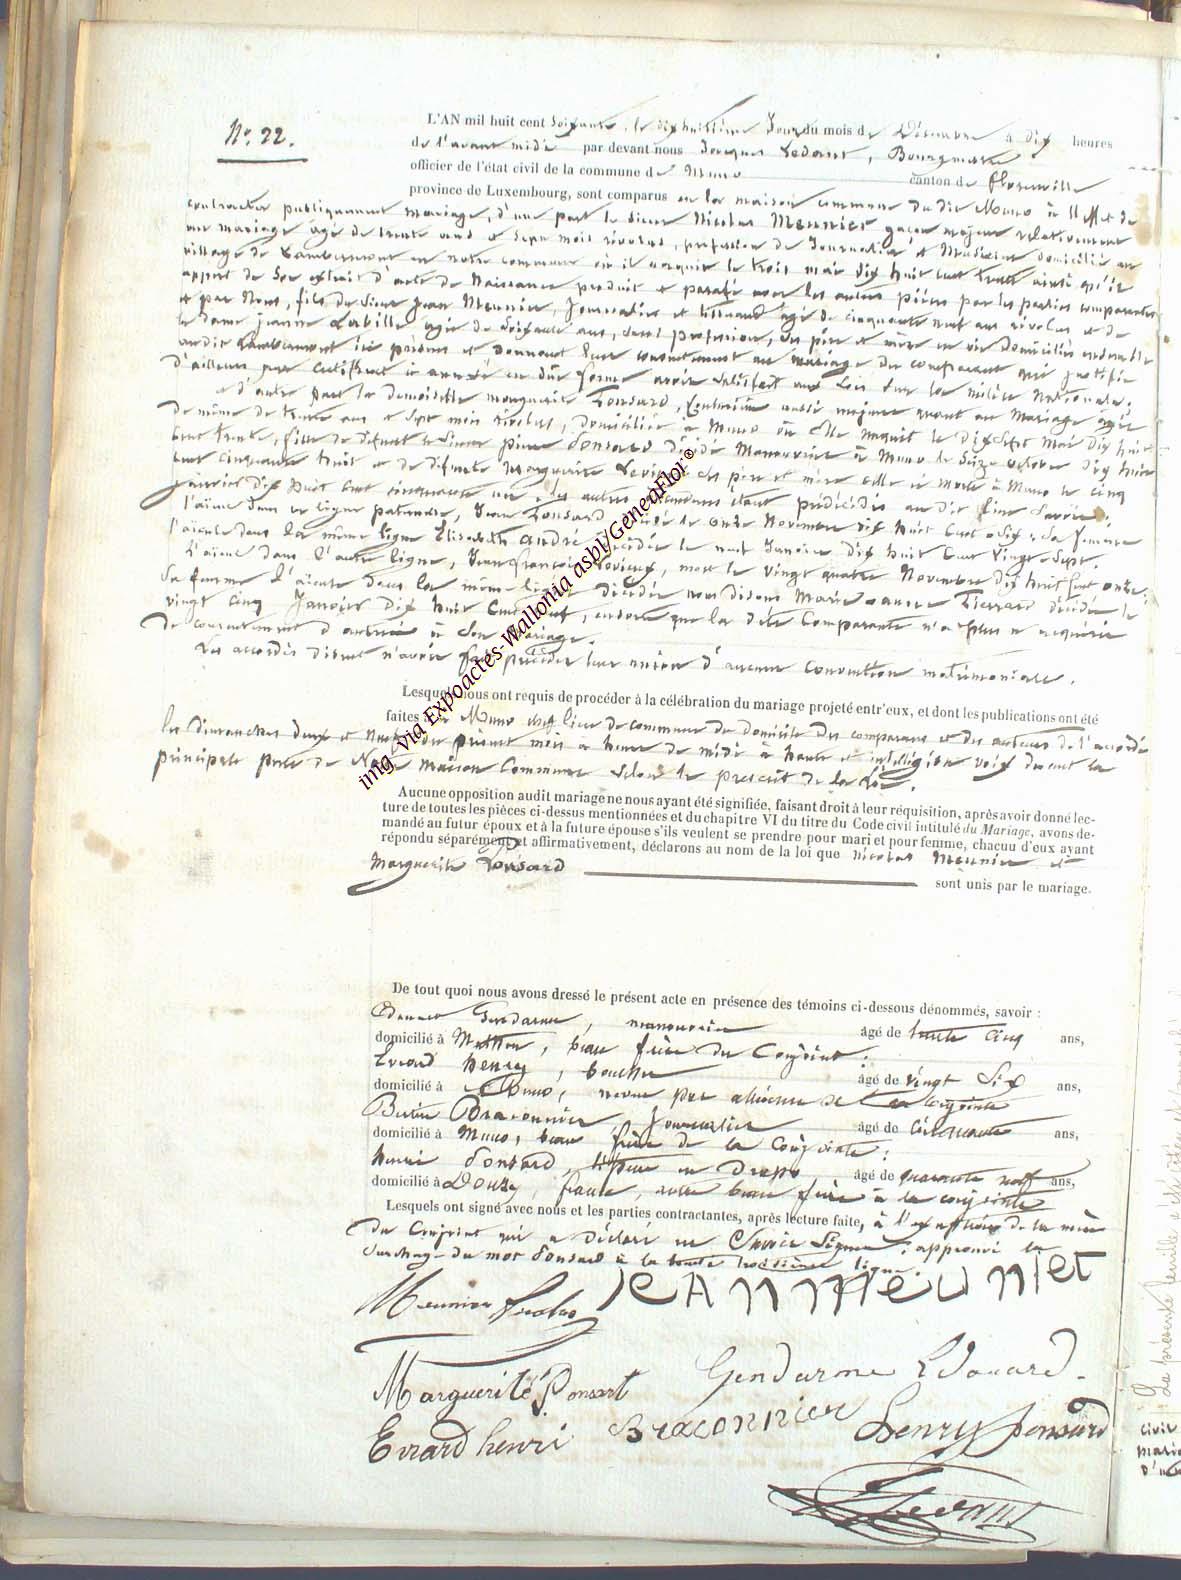 N° 22.
L'AN mil huit cent soixante, le dix huitième Jour du mois de Décembre à dix heures
de l'avant midi par devant nous Jacques Ledant, Bourgmestre
officier de l'état civil de la commune de Muno canton de Florenville
province de Luxembourg, sont comparus en la maison commune du dit Muno à l'effet de
contracter publiquement mariage, d'une part le sieur Nicolas Meunier garçon majeur relativement
au mariage âgé de trente ans et sept mois révolus, profession de Journalier et domicilié au
village de Lambermont en notre commune où il naquit le trois mai dix huit cent trente ainsi qu'il
appert de son extrait d'acte de Naissance produit et parafé avec les autres pièces par les parties comparantes
et par Nous, fils du sieur Jean Meunier, Journalier et tisserand âgé de cinquante neuf ans révolus et de
la dame Jeanne âgée de soixante ans, sans profession, ses père et mère en vie domiciliés ensemble
audit Lambermont ici présens et donnant leur consentement au mariage du comparant qui justifie
d'ailleurs par certificat ci annexé en due forme avoir satisfait aux lois sur la milice Nationale.
et d'autre part la demoiselle Marguerite Ponsard, aussi majeure quant au Mariage âgée
de même de trente ans et sept mois révolus, domiciliée à Muno où elle naquit le dix sept Mai dix huit
cent trente, fille de défunt le sieur Pierre Ponsard décédé Manouvrier à Muno le seize octobre dix huit
cent cinquante huit et de défunte Marguerite ses père et mère celle ci morte à Muno le cinq
Janvier dix huit cent cinquante un, les autres ascendans étant prédécédés au dit lieu savoir:
l'aïeul dans la ligne paternelle, Jean Ponsard décédé le onze Novembre dix huit cent dix, sa femme
l'aïeule dans la même ligne Elisabeth André décédée le neuf Janvier dix huit cent vingt sept.
L'aïeul dans l'autre ligne, Jean françois mort le vingt quatre Novembre dix huit cent onze.
Sa femme l'aïeule dans la même ligne décédée nous disons Marie Jeanne décédée le
vingt cinq Janvier dix huit cent neuf, ensorte que la dite Comparante n'a plus à requérir
de consentement d'autrui à son Mariage.
Les accordés disent n'avoir fait précéder leur union d'aucune convention matrimoniale.
Lesquels nous ont requis de procéder à la célébration du mariage projeté entr'eux, et dont les publications ont été
faites à Muno chef lieu de commune du domicile des comparans et des auteurs de l'accordé
les dimanches deux et neuf du présent mois à heure de midi à haute et intelligible voix devant la
principale porte de Notre Maison Commune selon le prescrit de la Loi.
Aucune opposition audit mariage ne nous ayant été signifiée, faisant droit à leur réquisition, après avoir donné lec-
ture de toutes les pièces ci-dessus mentionnées et du chapitre VI du titre du Code civil intitulé du Mariage, avons de-
mandé au futur époux et à la future épouse s'ils veulent se prendre pour mari et pour femme, chacuu d'eux ayant
répondu séparément et affirmativement, déclarons au nom de la loi que Nicolas Meunier et
Marguerite Ponsard
sont unis par le mariage.
De tout quoi nous avons dressé le présent acte en présence des témoins ci-dessous dénommés, savoir :
Gendarme, manouvrier âgé de trente cinq ans,
domicilié à beau frère du Conjoint;
Evrard henry, boucher âgé de vingt six ans,
domicilié à Muno, neveu par alliance de la conjointe
Braconnier Journalier âgé de cinquante ans,
domicilié à Muno, beau frère de la Conjointe;
henri Ponsard, âgé de quarante neuf ans,
domicilié à Douzy, france, beau frère à la conjointe
Lesquels ont signé avec nous et les parties contractantes, après lecture faite, à l'exception de la mère
du Conjoint qui a déclaré ne savoir signer; approuvé la
surcharge du mot Ponsard à la trente troisième ligne.
Meunier Nicolas JeAn Meunier
Marguerite Ponsart Gendarme Edouard.
Evrard henri Braconnier henry ponsard
Ledant
img via Expoactes-Wallonia asbl/GeneaFlor©
La présente feuille
civil
Maria